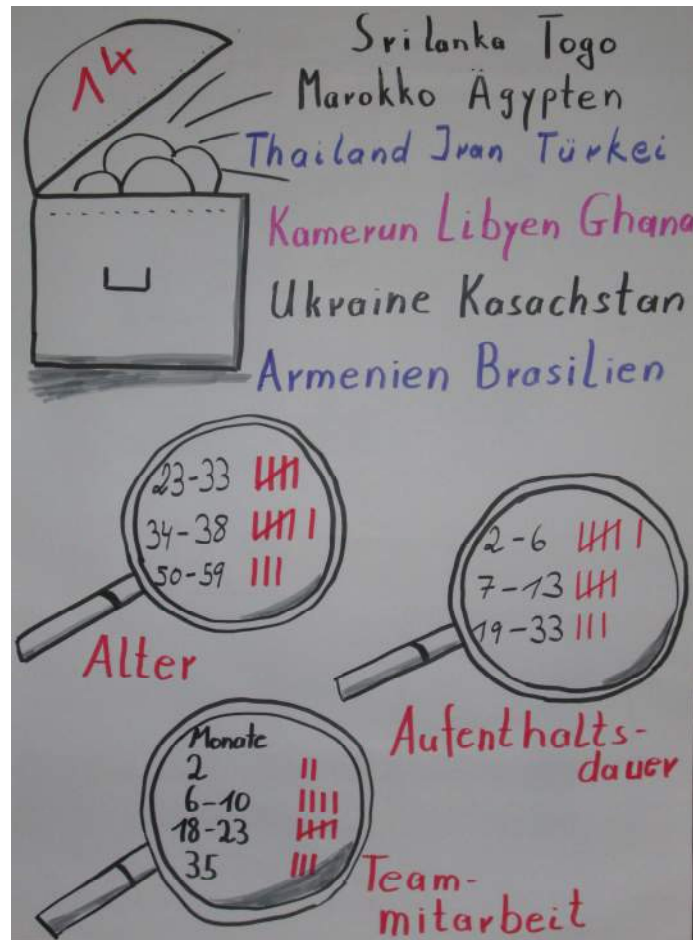 14
Sri Lanka Togo
Marokko Ägypten
Thailand Iran Türkei
Kamerun Libyen Ghana
Ukraine Kasachstan
Armenien Brasilien
23-33
34-38
50-59
Alter
2-6
7-13
19-33
Aufenthalts-
dauer
Monate
2
6-10
18-23
35
Team-
mitarbeit